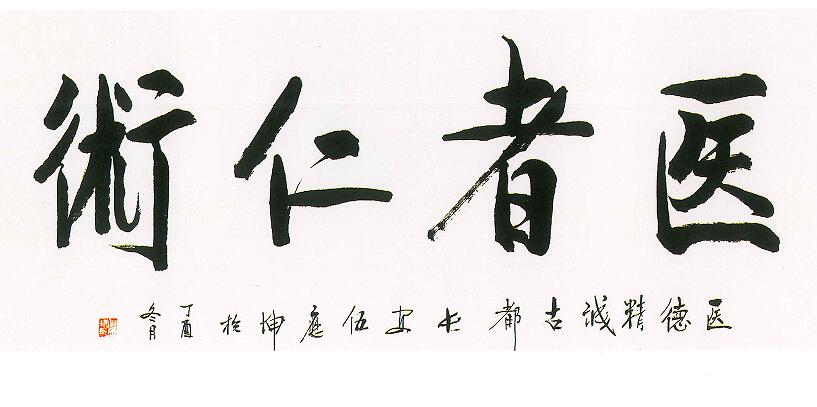 医者仁術
医德精诚古都长安伍庭坤於
丁酉
冬月